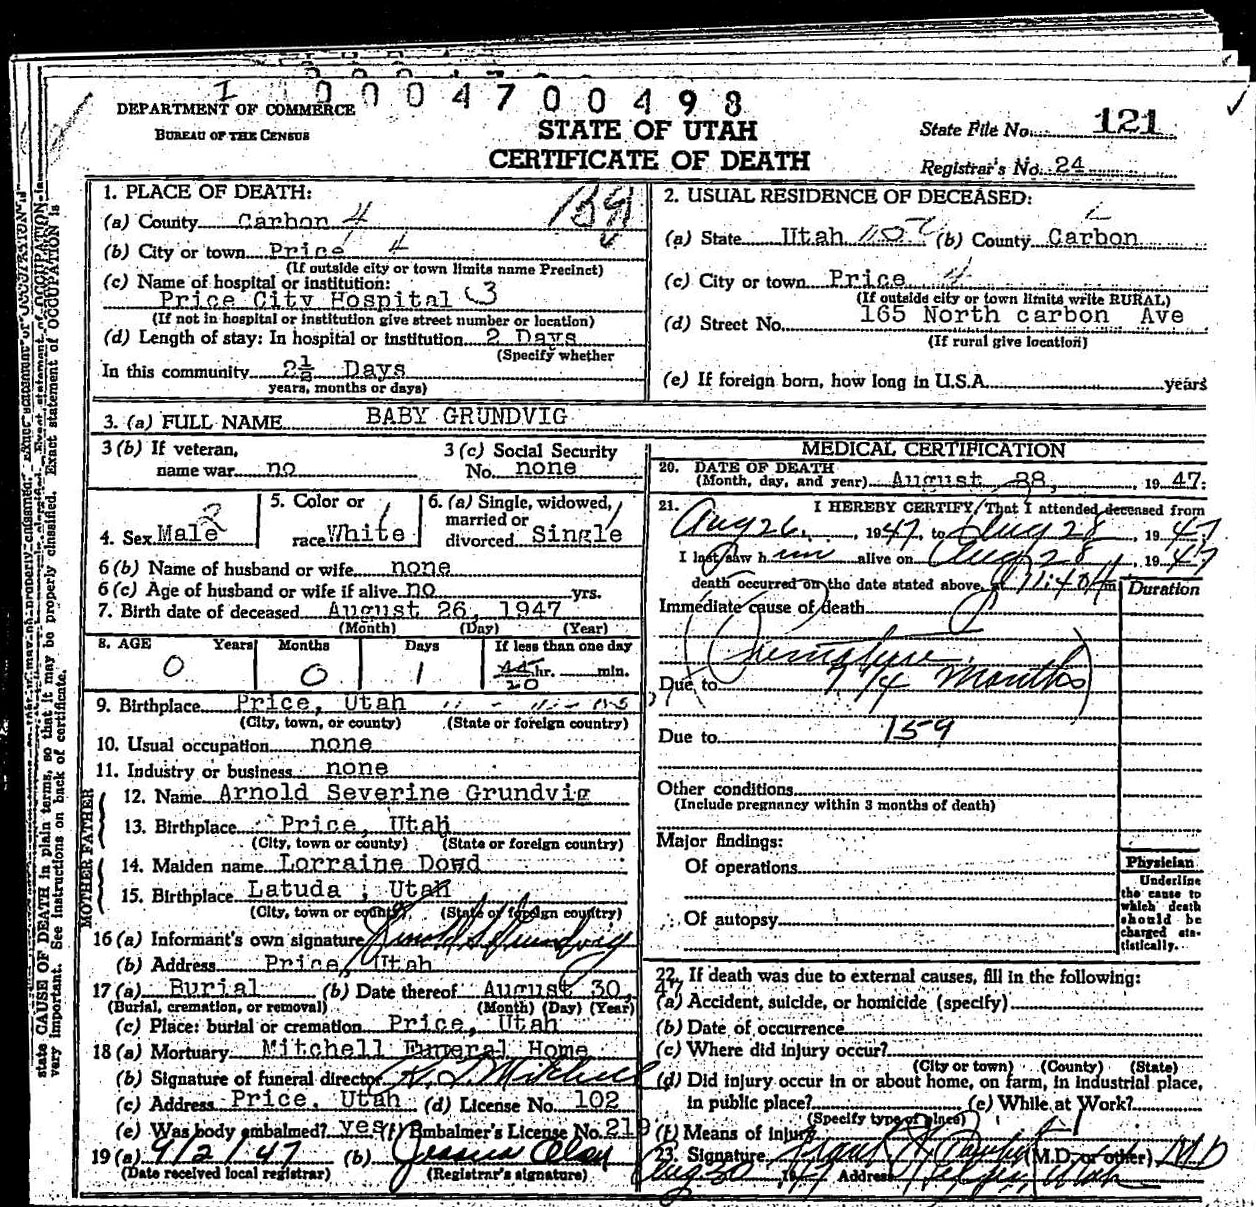 I 0004700498
DEPARTMENT OF COMMERCE
BUREAU OF THE CENSUS
STATE OF UTAH
CERTIFICATE OF DEATH
State File No. 121
Registrar's No. 24
1. PLACE OF DEATH:
(a) County Carbon 4
(b) City or town Price 4
(If outside city or town limits name Precinct)
(c) Name of hospital or institution:
Price City Hospital 3
(If not in hospital or institution give street number or location)
(d) Length of stay: In hospital or institution 2 Days
(Specify whether
In this community 2½ Days
years, months or days)
2. USUAL RESIDENCE OF DECEASED:
(a) State Utah (b) County Carbon
(c) City or town Price 4
(If outside city or town limits write RURAL)
(d) Street No. 165 North carbon Ave
(If rural give location)
(e) If foreign born, how long in U.S.A. years
3. (a) FULL NAME BABY GRUNDVIG
3 (b) If veteran, name war no
3 (c) Social Security No. none
4. Sex Male 2
5. Color or race White 1
6. (a) Single, widowed, married or divorced Single 1
6 (b) Name of husband or wife none
6 (c) Age of husband or wife if alive no yrs.
7. Birth date of deceased August 26, 1947
(Month) (Day) (Year)
8. AGE Years Months Days If less than one day
0 0 1 20 hr. min.
9. Birthplace Price, Utah
(City, town, or county) (State or foreign country)
10. Usual occupation none
11. Industry or business none
FATHER
12. Name Arnold Severine Grundvig
13. Birthplace Price, Utah
(City, town or county) (State or foreign country)
MOTHER
14. Maiden name Lorraine Dowd
15. Birthplace Latuda, Utah
(City, town or county) (State or foreign country)
16 (a) Informant's own signature Arnold S Grundvig
(b) Address Price, Utah
17 (a) Burial (b) Date thereof August 30, 47
(Burial, cremation, or removal) (Month) (Day) (Year)
(c) Place: burial or cremation Price, Utah
18 (a) Mortuary Mitchell Funeral Home
(b) Signature of funeral director Mitchell
(c) Address Price, Utah (d) License No. 102
(e) Was body embalmed? yes (f) Embalmer's License No. 219
19 (a) 9/2/47 (b) Jessica Olson
(Date received local registrar) (Registrar's signature)
MEDICAL CERTIFICATION
20. DATE OF DEATH
(Month, day, and year) August 28, 1947
21. I HEREBY CERTIFY, That I attended deceased from
Aug 26, 1947, to Aug 28, 1947
I last saw him alive on Aug 28, 1947
death occurred on the date stated above, at 11:40 A m
Duration
Immediate cause of death
Premature
Due to 7 1/4 months
Due to 159
Other conditions
(Include pregnancy within 3 months of death)
Major findings:
Of operations
Of autopsy
Physician
Underline the cause to which death should be charged statistically.
22. If death was due to external causes, fill in the following:
(a) Accident, suicide, or homicide (specify)
(b) Date of occurrence
(c) Where did injury occur?
(City or town) (County) (State)
(d) Did injury occur in or about home, on farm, in industrial place,
in public place? (e) While at Work?
(Specify type of place)
(f) Means of injury
23. Signature (M.D. or other) MD
Aug 30 1947 Address Helper, Utah
state CAUSE OF DEATH in plain terms, so that it may be properly classified. Exact statement of OCCUPATION is
very important. See instructions on back of certificate.